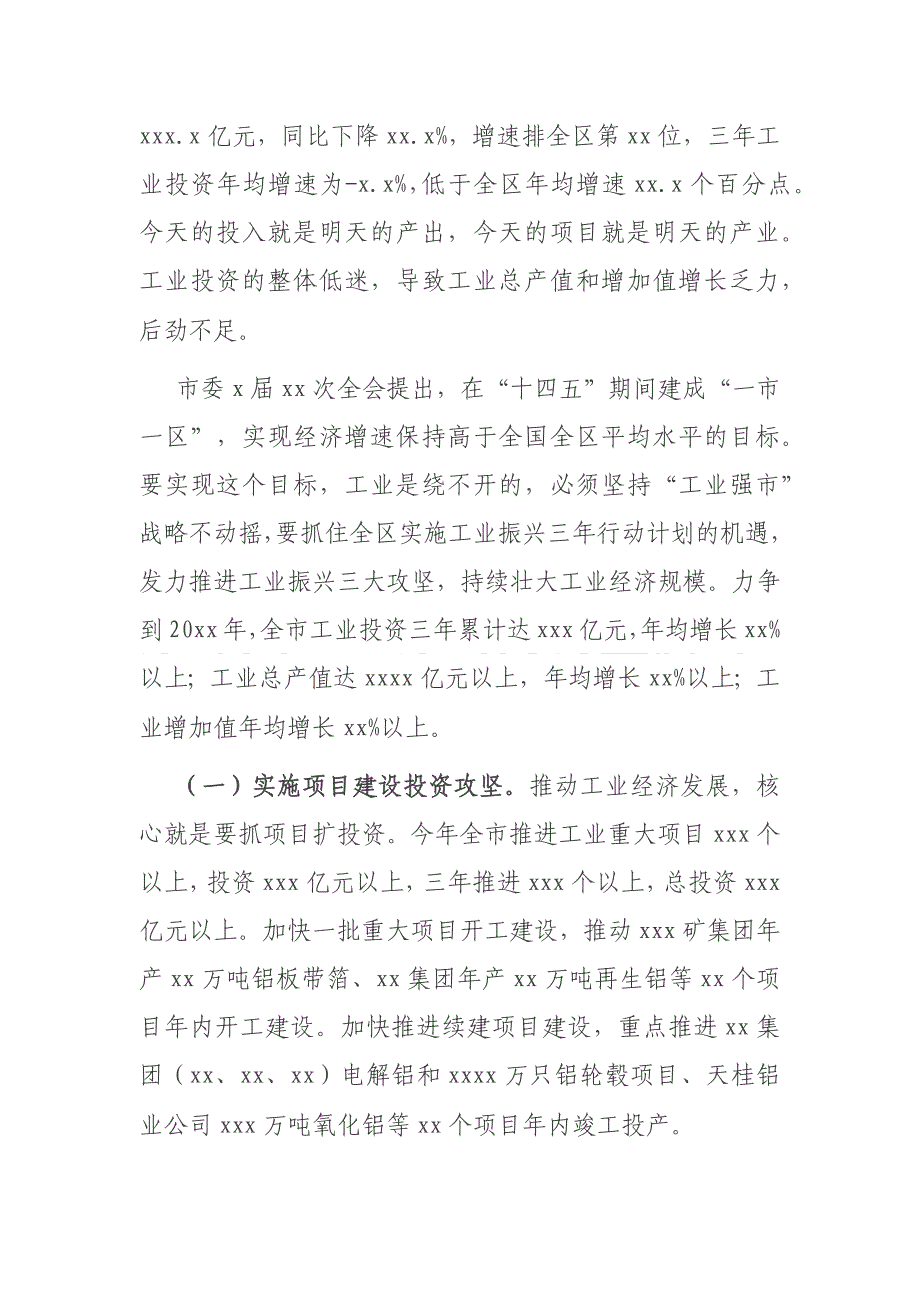 xxx.x 亿元，同比下降 xx.x%，增速排全区第 xx 位，三年工
业投资年均增速为-x.x%，低于全区年均增速 xx.x 个百分点。
今天的投入就是明天的产出，今天的项目就是明天的产业。
工业投资的整体低迷，导致工业总产值和增加值增长乏力，
后劲不足。
市委 x 届 xx 次全会提出，在“十四五”期间建成“一市
一区”，实现经济增速保持高于全国全区平均水平的目标。
要实现这个目标，工业是绕不开的，必须坚持“工业强市”
战略不动摇，要抓住全区实施工业振兴三年行动计划的机遇，
发力推进工业振兴三大攻坚，持续壮大工业经济规模。力争
到 20xx 年，全市工业投资三年累计达 xxx 亿元，年均增长 xx%
以上；工业总产值达 xxxx 亿元以上，年均增长 xx%以上；工
业增加值年均增长 xx%以上。
（一）实施项目建设投资攻坚。推动工业经济发展，核
心就是要抓项目扩投资。今年全市推进工业重大项目 xxx 个
以上，投资 xxx 亿元以上，三年推进 xxx 个以上，总投资 xxx
亿元以上。加快一批重大项目开工建设，推动 xxx 矿集团年
产 xx 万吨铝板带箔、xx 集团年产 xx 万吨再生铝等 xx 个项
目年内开工建设。加快推进续建项目建设，重点推进 xx 集
团（xx、xx、xx）电解铝和 xxxx 万只铝轮毂项目、天桂铝
业公司 xxx 万吨氧化铝等 xx 个项目年内竣工投产。